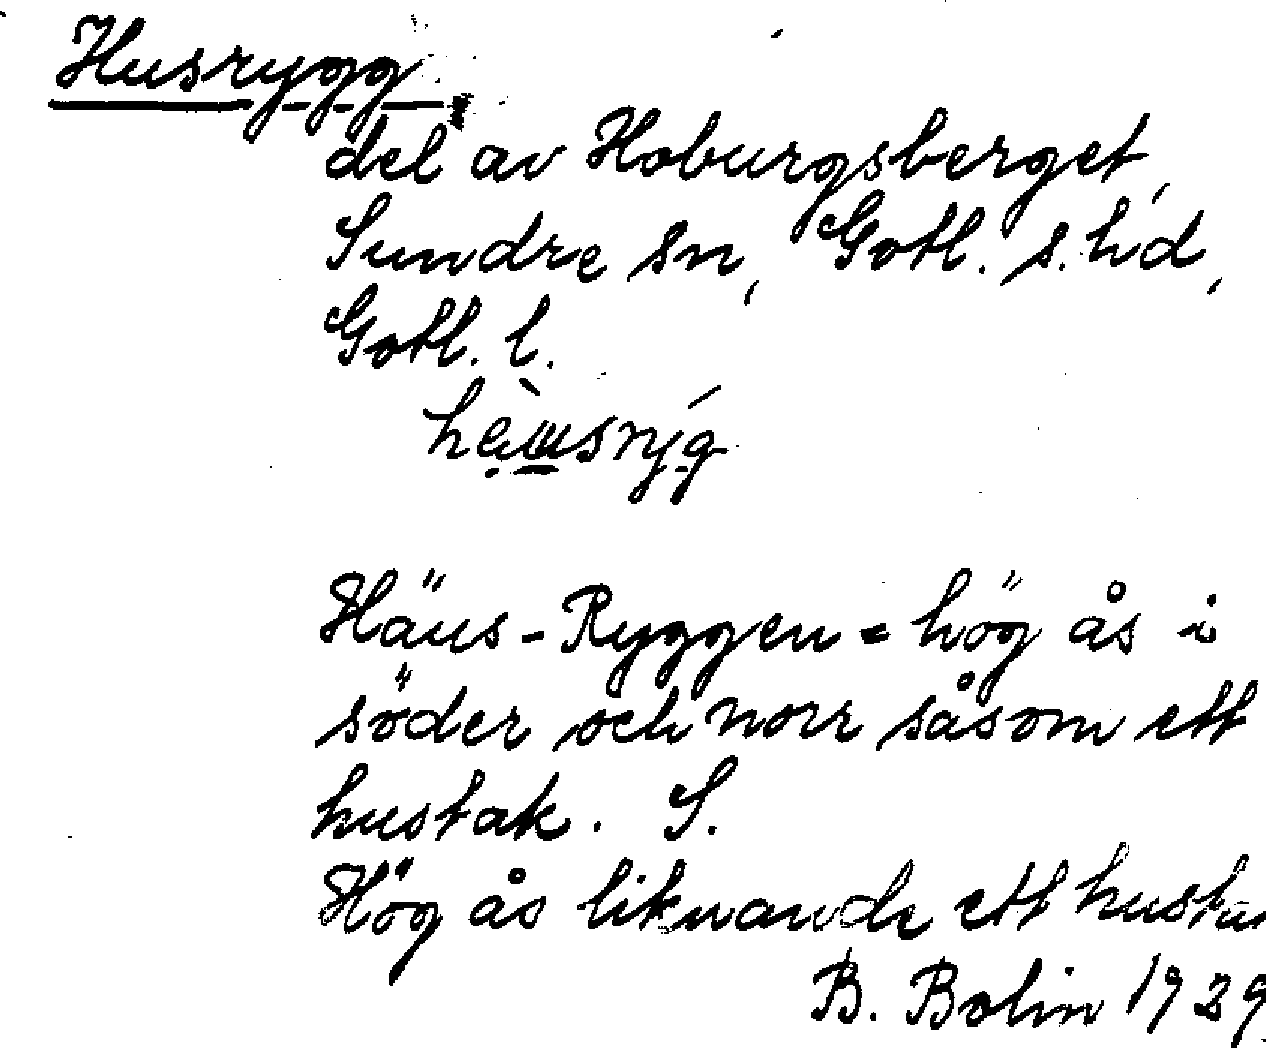 Husrygg
del av Hoburgsberget,
Sundre sn, Gotl. s. hd,
Gotl. l.
Häus-Ryggen = hög ås i
söder och norr såsom ett
hustak. S.
Hög ås liknande ett husta
B. Bolin 1929